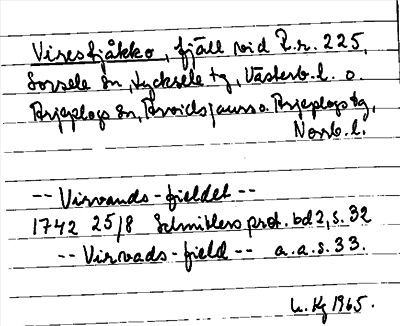 Virestjåkko, fjäll vid R.r. 225,
Sorsele sn, Lycksele tg, Västerb.l. o.
Arjeplogs sn, Arvidsjaurs o. Arjeplogs tg,
Norrb.l.
-- Virvands-fieldet --
1742 25/8 Schnitlers prot. bd 2, s. 32
-- Virvads-field -- a.a.s. 33.
1965.